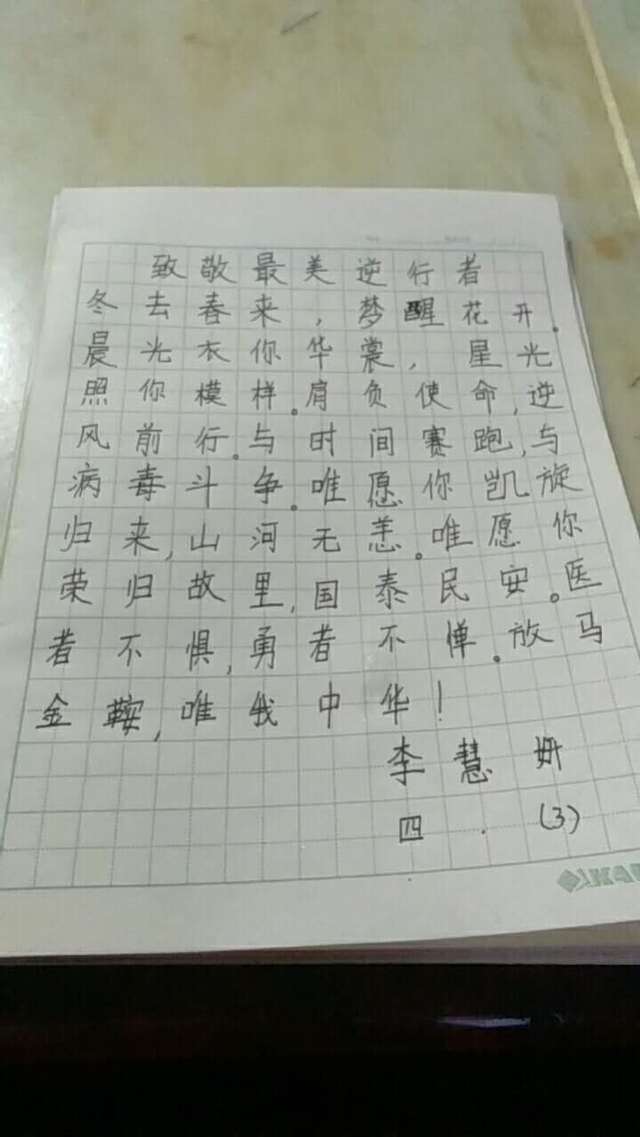 致敬最美逆行者
冬去春来，梦醒花开。
晨光衣你华裳，星光
照你模样。肩负使命，逆
风前行。与时间赛跑，与
病毒斗争。唯愿你凯旋
归来，山河无恙。唯愿你
荣归故里，国泰民安。医
者不惧，勇者不惮。放马
金鞍，唯我中华！
李慧妍
四.(3)